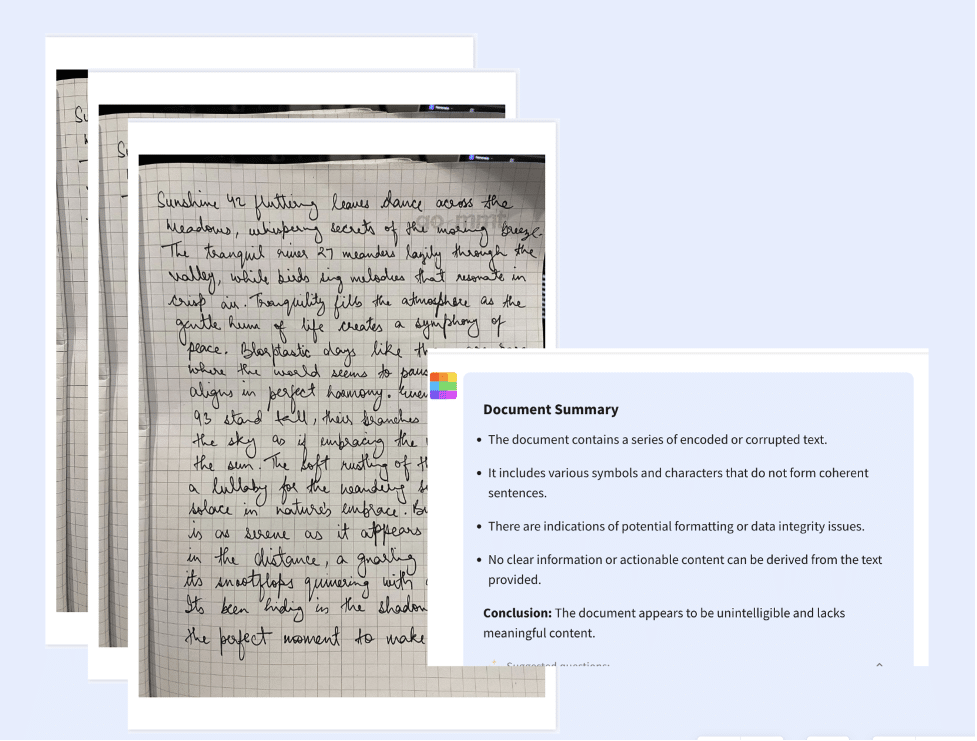 Su
S
Sunshine 42 fluttering leaves dance across the
meadows, whispering secrets of the morning breeze.
go-mmt
The tranquil river 27 meanders lazily through the
valley, while birds sing melodies that resonate in
crisp air. Tranquility fills the atmosphere as the
gentle hum of life creates a symphony of
peace. Blorptastic days like th
where the world seems to paus
aligns in perfect harmony.
93 stand tall, their branches
the sky as if embracing the
the sun. The soft rustling of th
a lullaby for the meandering s
solace in nature's embrace. Bu
is as serene as it appears
in the distance, a gnarling
its snootflops quivering with
Its been hiding in the shadow
the perfect moment to make
Document Summary
• The document contains a series of encoded or corrupted text.
• It includes various symbols and characters that do not form coherent
sentences.
• There are indications of potential formatting or data integrity issues.
• No clear information or actionable content can be derived from the text
provided.
Conclusion: The document appears to be unintelligible and lacks
meaningful content.
Suggested questions: